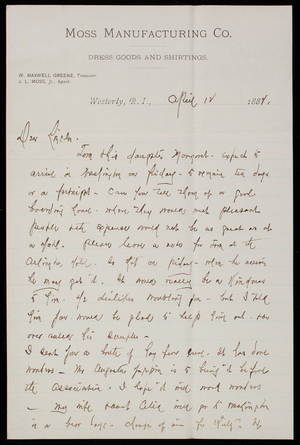 MOSS MANUFACTURING CO.
DRESS GOODS AND SHIRTINGS.
W. MAXWELL GREENE, Treasurer.
J. L. MOSS, Jr., Agent.
Westerly, R. I., April 18 1881.
Dear
Tom & his daughter Margaret expect to
arrive in Washington on Friday - to remain ten days
or a fortnight - Can you tell them of a good
boarding house where they would meet pleasant
people with expenses would not be as great as at
a Hotel. Please leave a note for Tom at the
Arlington Hotel. So that on Friday - when he arrives
he may get it. It would really be a Kindness
to him. He dislikes troubling you - but I told
him you would be glad to help him out.
I send you a bottle of Hay fever
wonders - Mr Augustus is to bring it before
the Association. I hope it will work wonders
- My wife will go to Washington
in a few days - change of air for